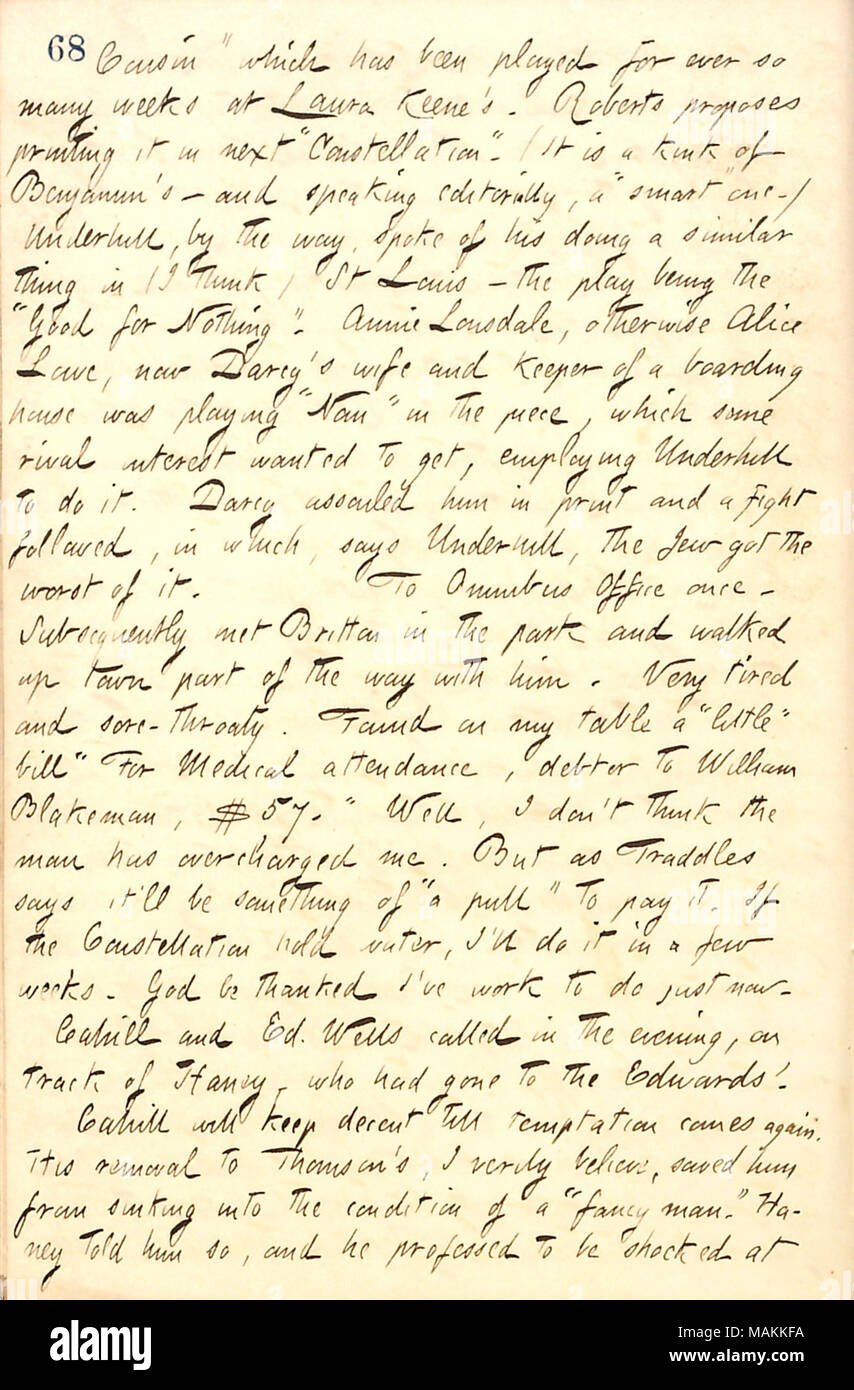 68
Cousin" which has been played for ever so
many weeks at Laura Keene's. Roberts proposes
printing it in next "Constellation". (It is a kink of
Benjamin's - and speaking editorially, a "smart" one-)
Underhill, by the way, spoke of his doing a similar
thing in (I think) St Louis - the play being the
"Good for Nothing". Annie Lonsdale, otherwise Alice
Lowe, now Darcy's wife and keeper of a boarding
house was playing "Nan" in the piece, which some
rival interest wanted to get, employing Underhill
to do it. Darcy assailed him in print and a fight
followed, in which, says Underhill, the Jew got the
worst of it. To Omnibus Office once -
Subsequently met Britton in the park and walked
up town part of the way with him. Very tired
and sore-throaty. Found on my table a "little"
bill" For Medical attendance, debtor to William
Blakeman, $57." Well, I don't think the
man has overcharged me. But as Traddles
says it'll be something of "a pull" to pay it. If
the Constellation hold water, I'll do it in a few
weeks. God be thanked I've work to do just now-
Cahill and Ed. Wells called in the evening, on
track of Haney - who had gone to the Edwards'.
Cahill will keep decent till temptation comes again.
His removal to Thomson's, I verily believe, saved him
from sinking into the condition of a "fancy man." Ha-
ney told him so, and he professed to be shocked at
alamy
Image ID: MAKKFA
www.alamy.com